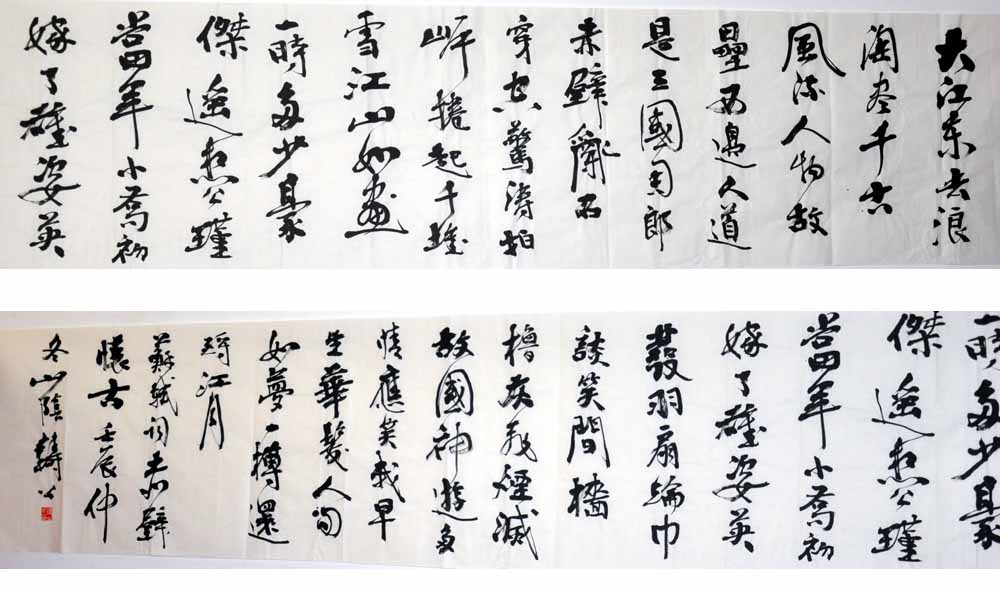 大江东去浪
淘尽千古
風流人物故
壘西邊人道
是三國周郎
赤壁亂石
穿空驚涛拍
岸捲起千堆
雪江山如畫
一時多少豪
傑遥想公瑾
當年小喬初
嫁了雄姿英
一時多少豪
傑遥想公瑾
當年小喬初
嫁了雄姿英
發羽扇綸巾
談笑間檣
櫓灰飛煙滅
故國神遊多
情應笑我早
生華髮人间
如夢一樽還
酹江月
蘇軾词赤壁
懷古壬辰仲
冬山陰